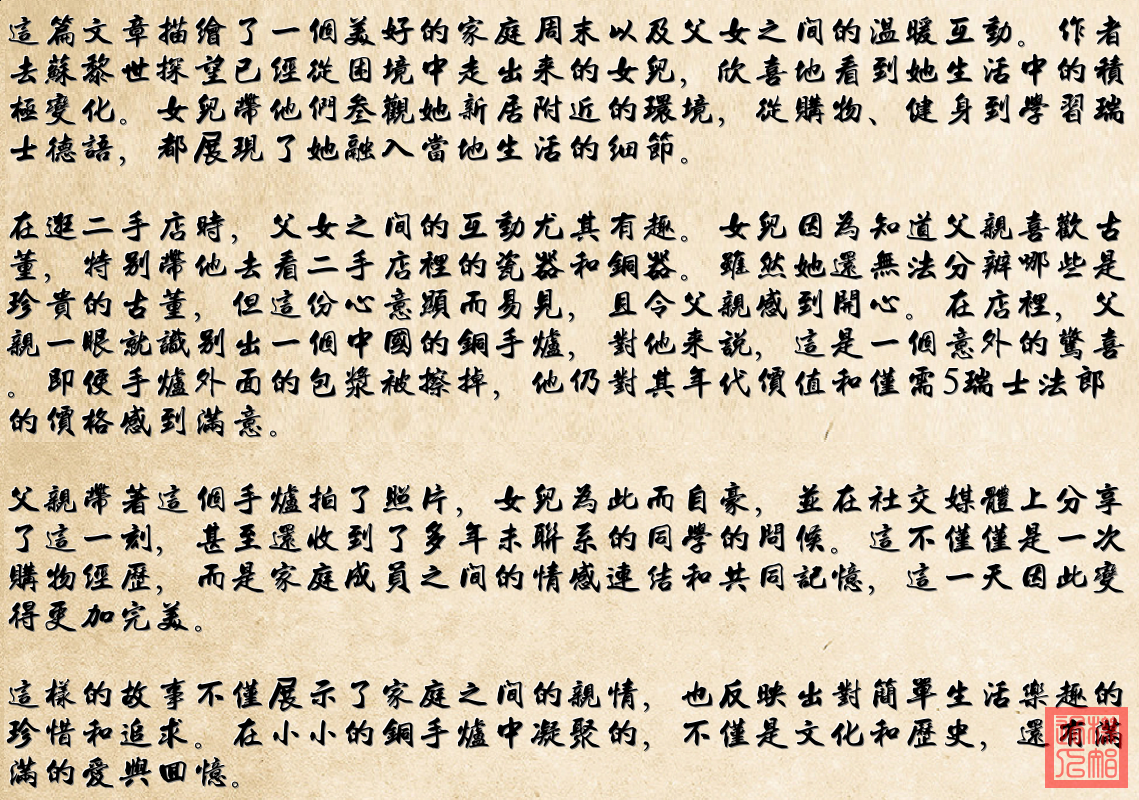 這篇文章描繪了一個美好的家庭周末以及父女之间的溫暖互動。作者
去蘇黎世探望已經從困境中走出來的女兒，欣喜地看到她生活中的積
極變化。女兒帶他們叁觀她新居附近的環境，從購物、健身到學習瑞
士德語，都展現了她融入當地生活的细節。
在逛二手店時，父女之间的互動尤其有趣。女兒因為知道父親喜歡古
董，特别帶他去看二手店裡的瓷器和銅器。雖然她還無法分辦哪些是
珍貴的古董，但這份心意顯而易見，且令父親感到開心。在店裡，父
親一眼就識别出一個中國的銅手爐，對他来説，這是一個意外的驚喜
。即便手爐外面的包漿被擦掉，他仍對其年代價值和僅需5瑞士法郎
的價格感到滿意。
父親帶著這個手爐拍了照片，女兒為此而自豪，並在社交媒體上分享
了這一刻，甚至還收到了多年未聯系的同學的問候。這不僅僅是一次
購物經歷，而是家庭成員之间的情感連结和共同記憶，這一天因此變
得更加完美。
這樣的故事不僅展示了家庭之间的親情，也反映出對簡單生活樂趣的
珍惜和追求。在小小的銅手爐中凝聚的，不僅是文化和歷史，還有滿
滿的愛與回憶。